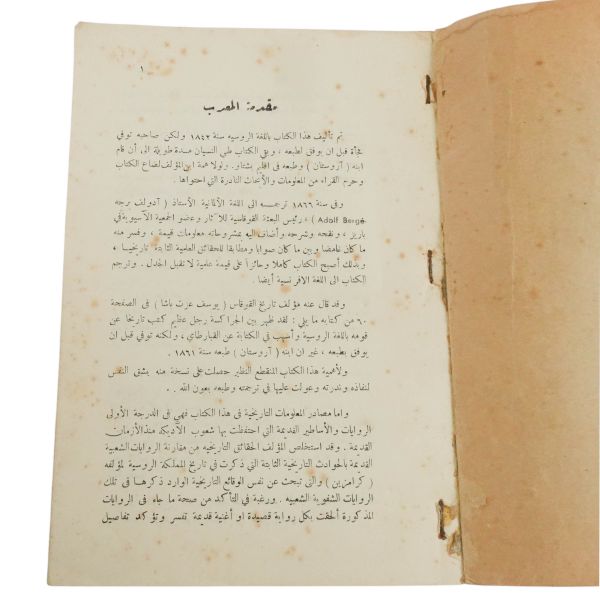 ١
مقدمة المعرب
تم تأليف هذا الكتاب باللغة الروسيه سنة ١٨٤٢ ولكن صاحبه توفي
فجأة قبل ان يوفق لطبعه ، وبقي الكتاب طي النسيان مدة طويلة الى أن قام
ابنه ( آروستان ) وطبعه في اقليم بشتاو . ولولا همة ابن المؤلف لضاع الكتاب
وحرم القراء من المعلومات والأبحاث النادرة التي احتواها .
وفي سنة ١٨٦٦ ترجمه الى اللغة الألمانية الأستاذ ( آدولف برجه
Adolf Bergé ) رئيس البعثة القوقاسية للآثار وعضو الجمعية الآسيوية في
باريز ، ونقحه وشرحه وأضاف اليه بشروحاته معلومات قيمة ، وفسر هذه
ما كان غامضا وبين ما كان صوابا ومطابقا للحقائق العلمية الثابتة تاريخيا
وبذلك أصبح الكتاب كاملا وحائزاً على قيمة علمية لا تقبل الجدل . وترجم
الكتاب الى اللغة الافرنسية أيضا .
وقد قال عنه مؤلف تاريخ القوقاس ( يوسف عزت باشا ) في الصفحة
٦٠ من كتابه ما يلي : لقد ظهر بين الجراكسة رجل عظيم كتب تاريخا عن
قومه باللغة الروسية وأسهب في الكتابة عن القبارطاي ، ولكنه توفي قبل ان
يوفق بطبعه ، غير ان ابنه ( آروستان ) طبعه سنة ١٨٦١ .
ولأهمية هذا الكتاب المنقطع النظير حصلت على نسخة منه بشق النفس
لنفاذه وندرته وعولت عليها في ترجمته وطبعه بعون الله .
واما مصادر المعلومات التاريخية في هذا الكتاب فهي في الدرجة الأولى
الروايات والأساطير القديمة التي احتفظت بها شعوب الأديكه منذ الأزمان
القديمة . وقد استخلص المؤلف الحقائق التاريخيه من مقارنة الروايات الشعبية
القديمة بالحوادث التاريخية الثابتة التي ذكرت في تاريخ المملكة الروسية لمؤلفه
( كرامزين ) والتي تبحث عن نفس الوقائع التاريخية الوارد ذكرها في تلك
الروايات الشفوية الشعبيه . ورغبة في التأكد من صحة ما جاء في الروايات
المذكورة ألحقت بكل رواية قصيدة او أغنية قديمة تفسر وتؤكد تفاصيل